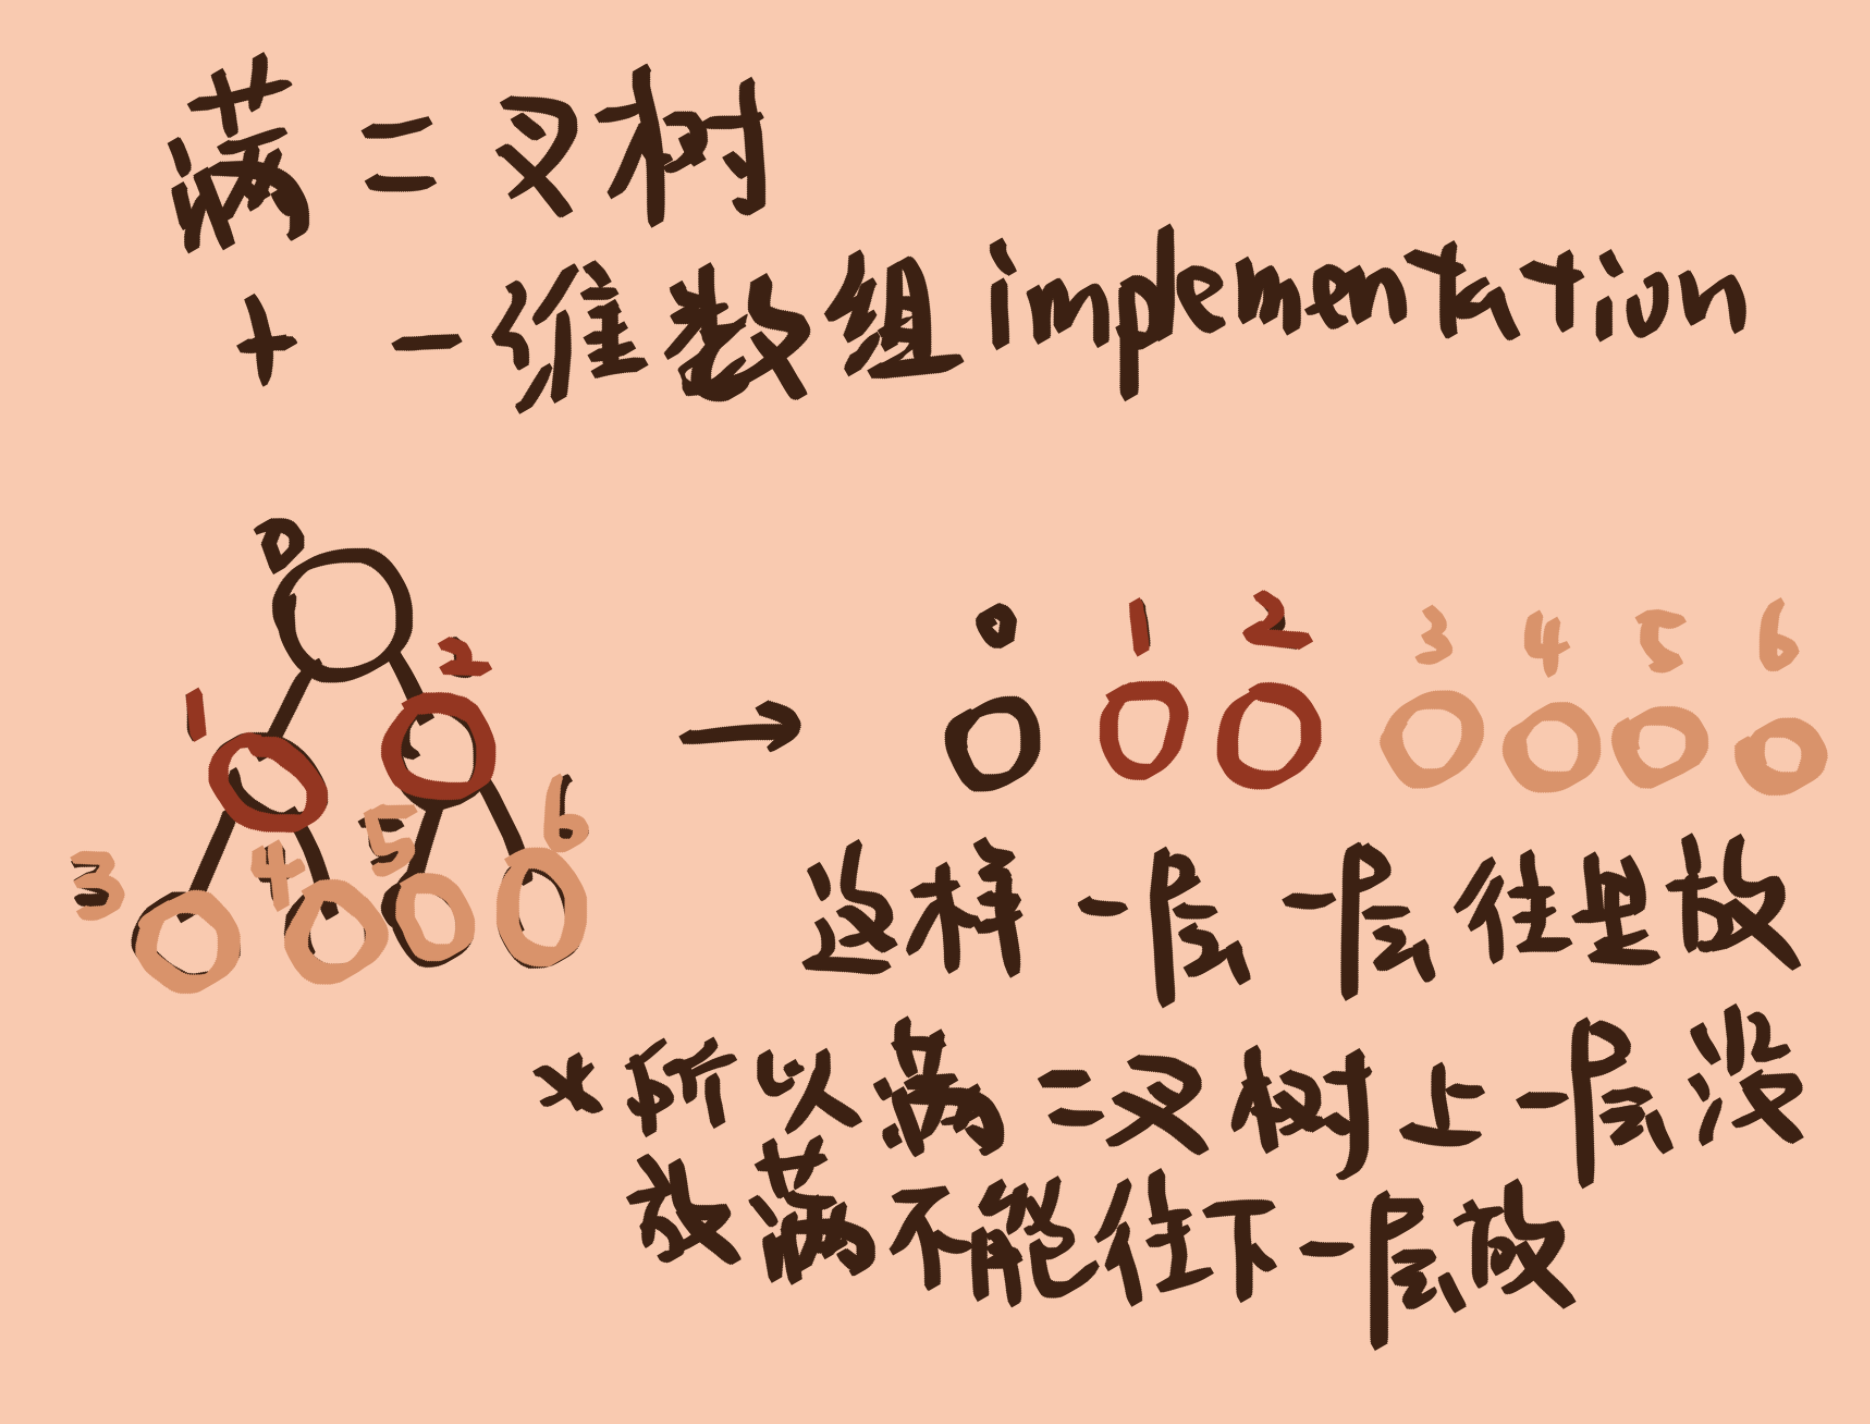 满二叉树
+ 一维数组implementation
0
1 2
3 4 5 6
→
0 1 2 3 4 5 6
这样一层一层往里放
*所以满二叉树上一层没
放满不能往下一层放